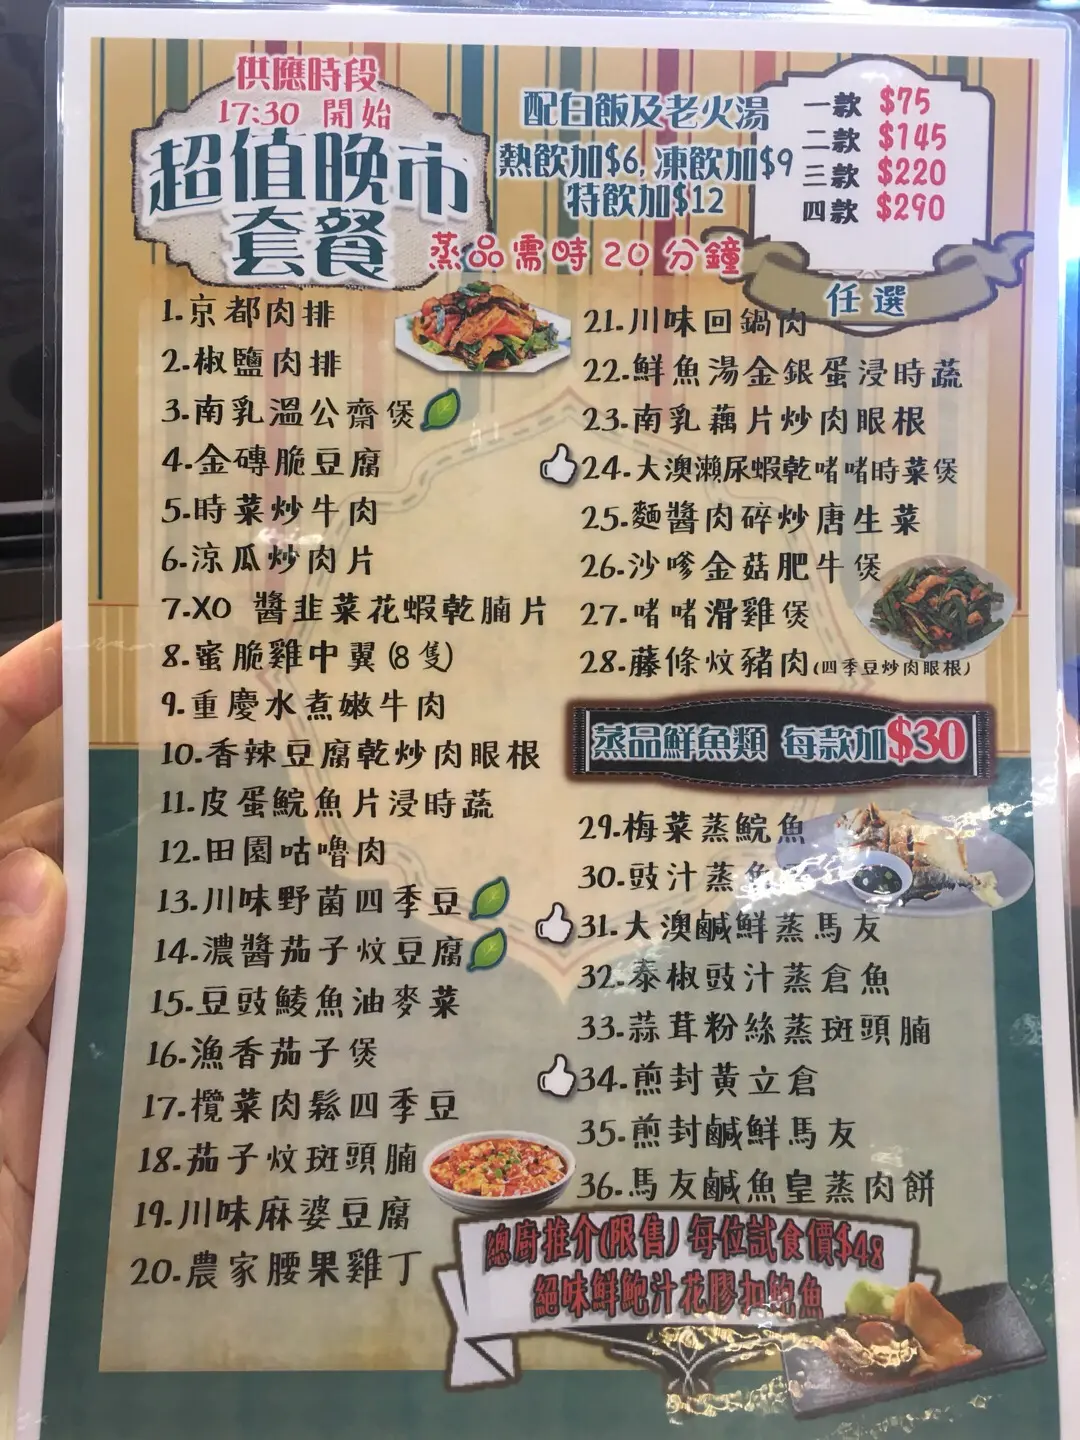 供應時段
17:30 開始
超值晚市
套餐
配白飯及老火湯
熱飲加$6, 凍飲加$9
特飲加$12
蒸品需時20分鐘
一款 $75
二款 $145
三款 $220
四款 $290
任選
1.京都肉排
2.椒鹽肉排
3.南乳溫公齋煲
4.金磚脆豆腐
5.時菜炒牛肉
6.涼瓜炒肉片
7.XO 醬韭菜花蝦乾腩片
8.蜜脆雞中翼(8隻)
9.重慶水煮嫩牛肉
10.香辣豆腐乾炒肉眼根
11.皮蛋鯇魚片浸時蔬
12.田園咕嚕肉
13.川味野菌四季豆
14.濃醬茄子炆豆腐
15.豆豉鯪魚油麥菜
16.漁香茄子煲
17.欖菜肉鬆四季豆
18.茄子炆斑頭腩
19.川味麻婆豆腐
20.農家腰果雞丁
21.川味回鍋肉
22.鮮魚湯金銀蛋浸時蔬
23.南乳藕片炒肉眼根
24.大澳瀨尿蝦乾啫啫時菜煲
25.麵醬肉碎炒唐生菜
26.沙嗲金菇肥牛煲
27.啫啫滑雞煲
28.藤條炆豬肉(四季豆炒肉眼根)
蒸品鮮魚類 每款加$30
29.梅菜蒸鯇魚
30.豉汁蒸魚
31.大澳鹹鮮蒸馬友
32.泰椒豉汁蒸倉魚
33.蒜茸粉絲蒸斑頭腩
34.煎封黃立倉
35.煎封鹹鮮馬友
36.馬友鹹魚皇蒸肉餅
總廚推介(限售) 每位試食價$48
絕味鮮鮑汁花膠扣鮑魚